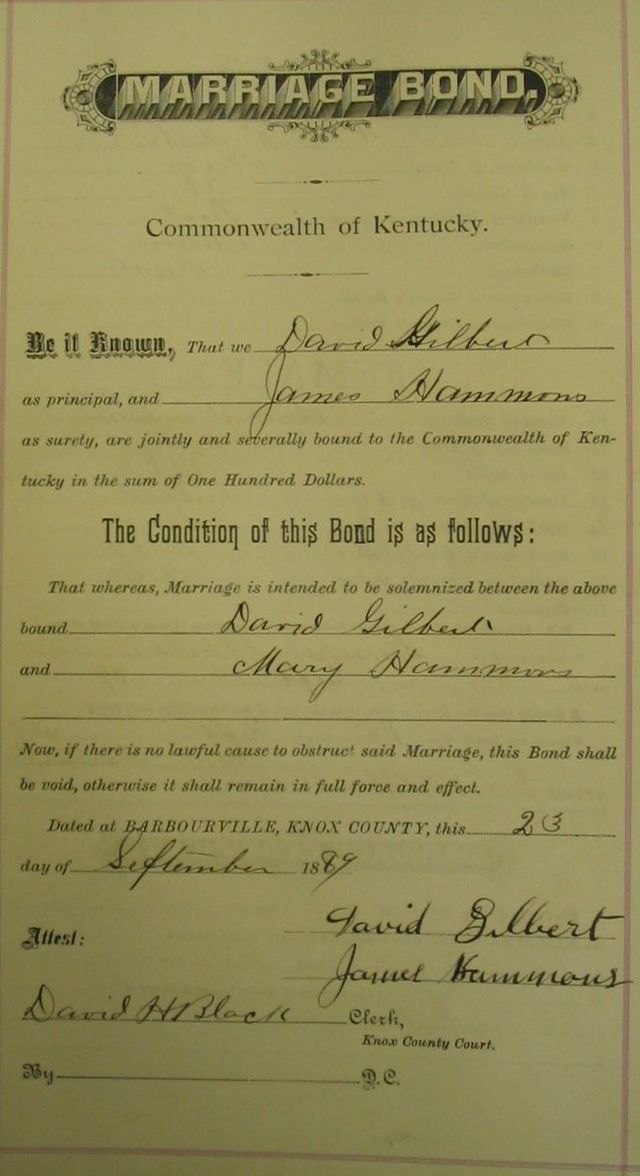 MARRIAGE BOND.
Commonwealth of Kentucky.
Be it Known, That we David Gilbert
as principal, and James Hammons
as surety, are jointly and severally bound to the Commonwealth of Ken-
tucky in the sum of One Hundred Dollars.
The Condition of this Bond is as follows:
That whereas, Marriage is intended to be solemnized between the above
bound David Gilbert
and Mary Hammons
Now, if there is no lawful cause to obstruct said Marriage, this Bond shall
be void, otherwise it shall remain in full force and effect.
Dated at BARBOURVILLE, KNOX COUNTY, this 23
day of September 1889
Attest: David Gilbert
James Hammons
David H Black Clerk,
Knox County Court.
By D.C.